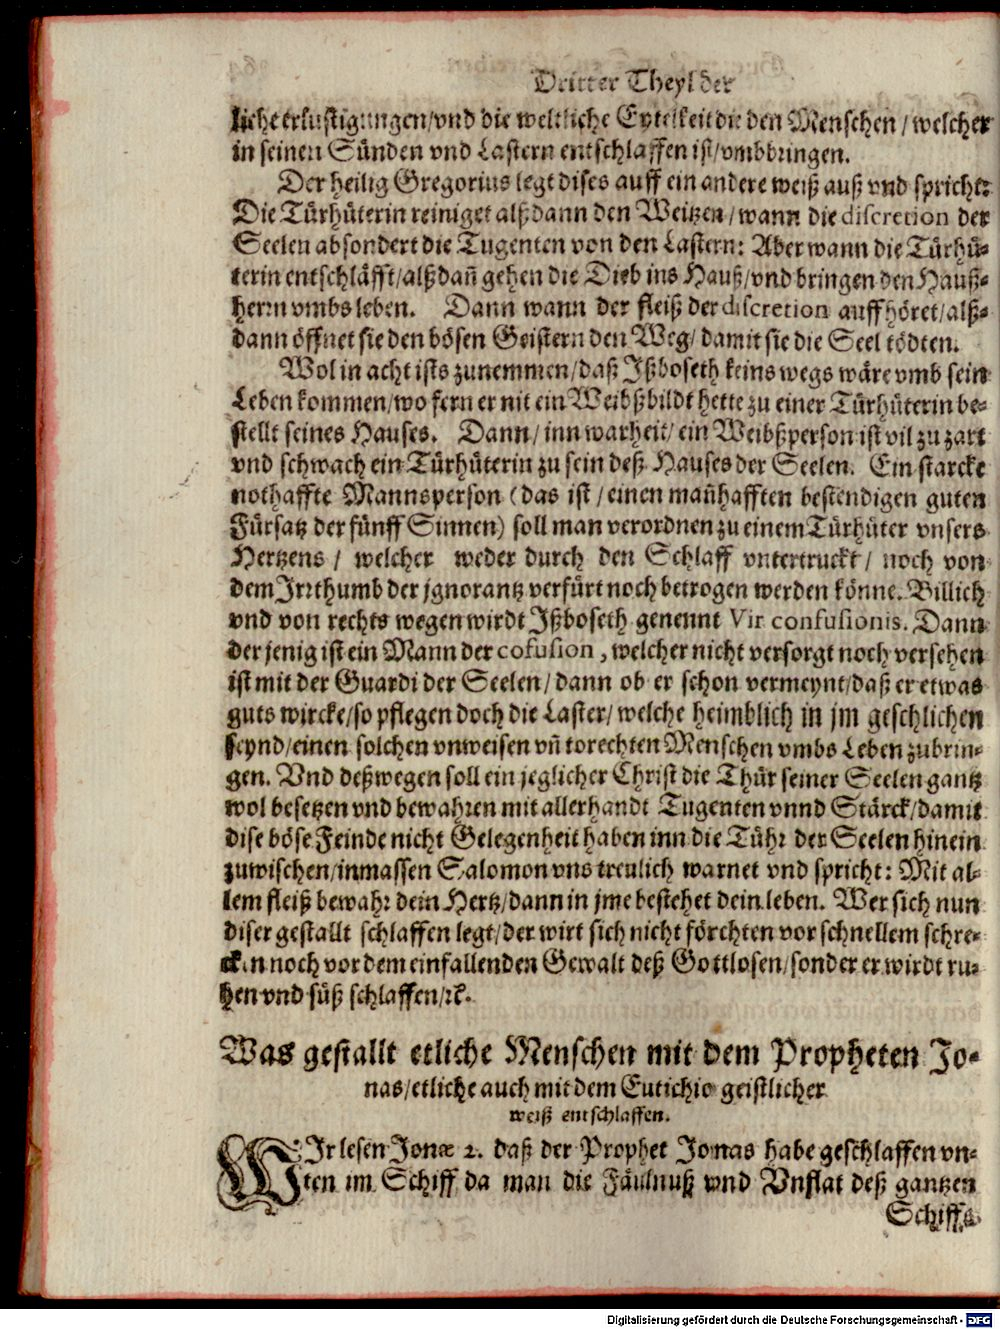 Dritter Theyl der
liche erlustigungen/vnd die weltliche Eytelkeit die den Menschen / welcher
in seinen Sünden vnd Lastern entschlaffen ist/vmbbringen.
Der heilig Gregorius legt dises auff ein andere weiß auß vnd spricht:
Die Türhüterin reiniget alßdann den Weitzen/wann die discretion der
Seelen absondert die Tugenten von den Lastern: Aber wann die Türhü-
terin entschläfft/alßdañ gehen die Dieb ins Hauß/vnd bringen den Hauß-
herrn vmbs leben. Dann wann der fleiß der discretion auffhöret/alß-
dann öffnet sie den bösen Geistern den Weg/damit sie die Seel tödten.
Wol in acht ists zunemmen/daß Jßboseth keins wegs wäre vmb sein
Leben kommen/wo fern er nit ein Weibßbildt hette zu einer Türhüterin be-
stellt seines Hauses. Dann/ inn warheit/ ein Weibßperson ist vil zu zart
vnd schwach ein Türhüterin zu sein deß Hauses der Seelen. Ein starcke
nothaffte Mannsperson (das ist / einen mañhafften bestendigen guten
Fürsatz der fünff Sinnen) soll man verordnen zu einem Türhüter vnsers
Hertzens / welcher weder durch den Schlaff vntertruckt / noch von
dem Jrrthumb der jgnorantz verfürt noch betrogen werden könne. Billich
vnd von rechts wegen wirdt Jßboseth genennt Vir confusionis. Dann
der jenig ist ein Mann der cofusion, welcher nicht versorgt noch versehen
ist mit der Guardi der Seelen/ dann ob er schon vermeynt/daß er etwas
guts wircke/so pflegen doch die Laster/ welche heimblich in jm geschlichen
seynd/einen solchen vnweisen vñ torechten Menschen vmbs Leben zubrin-
gen. Vnd deßwegen soll ein jeglicher Christ die Thür seiner Seelen gantz
wol besetzen vnd bewahren mit allerhandt Tugenten vnnd Stärck/damit
dise böse Feinde nicht Gelegenheit haben inn die Tühr der Seelen hinein
zuwischen/inmassen Salomon vns treulich warnet vnd spricht: Mit al-
lem fleiß bewahr dein Hertz/dann in jme bestehet dein leben. Wer sich nun
diser gestallt schlaffen legt/der wirt sich nicht förchten vor schnellem schre-
cken noch vor dem einfallenden Gewalt deß Gottlosen/sonder er wirdt ru-
hen vnd süß schlaffen/ꝛc.
Was gestallt etliche Menschen mit dem Propheten Jo-
nas/etliche auch mit dem Eutichio geistlicher
weiß entschlaffen.
WJr lesen Jonæ 2. daß der Prophet Jonas habe geschlaffen vn-
ten im Schiff da man die Fäulnuß vnd Vnflat deß gantzen
Schiffs
Digitalisierung gefördert durch die Deutsche Forschungsgemeinschaft - DFG